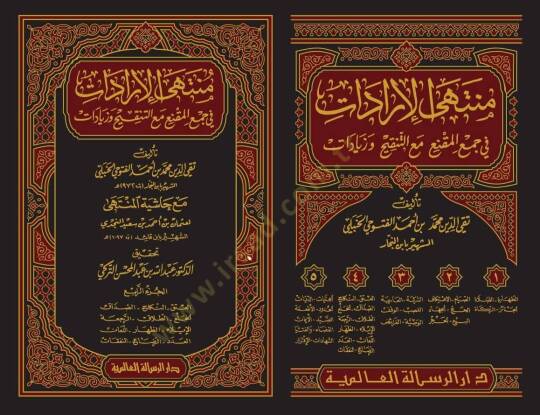 منتهى الإرادات
في جمع المقنع مع التنقيح وزيادات
تأليف
تقي الدين محمد بن أحمد الفتوحي الحنبلي
الشهير بابن النجار
١
٢
٣
٤
٥
دار الرسالة العالمية
منتهى الإرادات
في جمع المقنع مع التنقيح وزيادات
تأليف
تقي الدين محمد بن أحمد الفتوحي الحنبلي
الشهير بابن النجار (ت ٩٧٢ هـ)
مع حاشية المنتهى
لعثمان بن أحمد بن سعيد النجدي
الشهير بابن قائد (ت ١٠٩٧ هـ)
تحقيق
الدكتور عبد الله بن عبد المحسن التركي
الجزء الرابع
العتق - النكاح - الصداق
الخلع - الطلاق - الرجعة
الإيلاء - الظهار - اللعان
العدد - الرضاع - النفقات
دار الرسالة العالمية